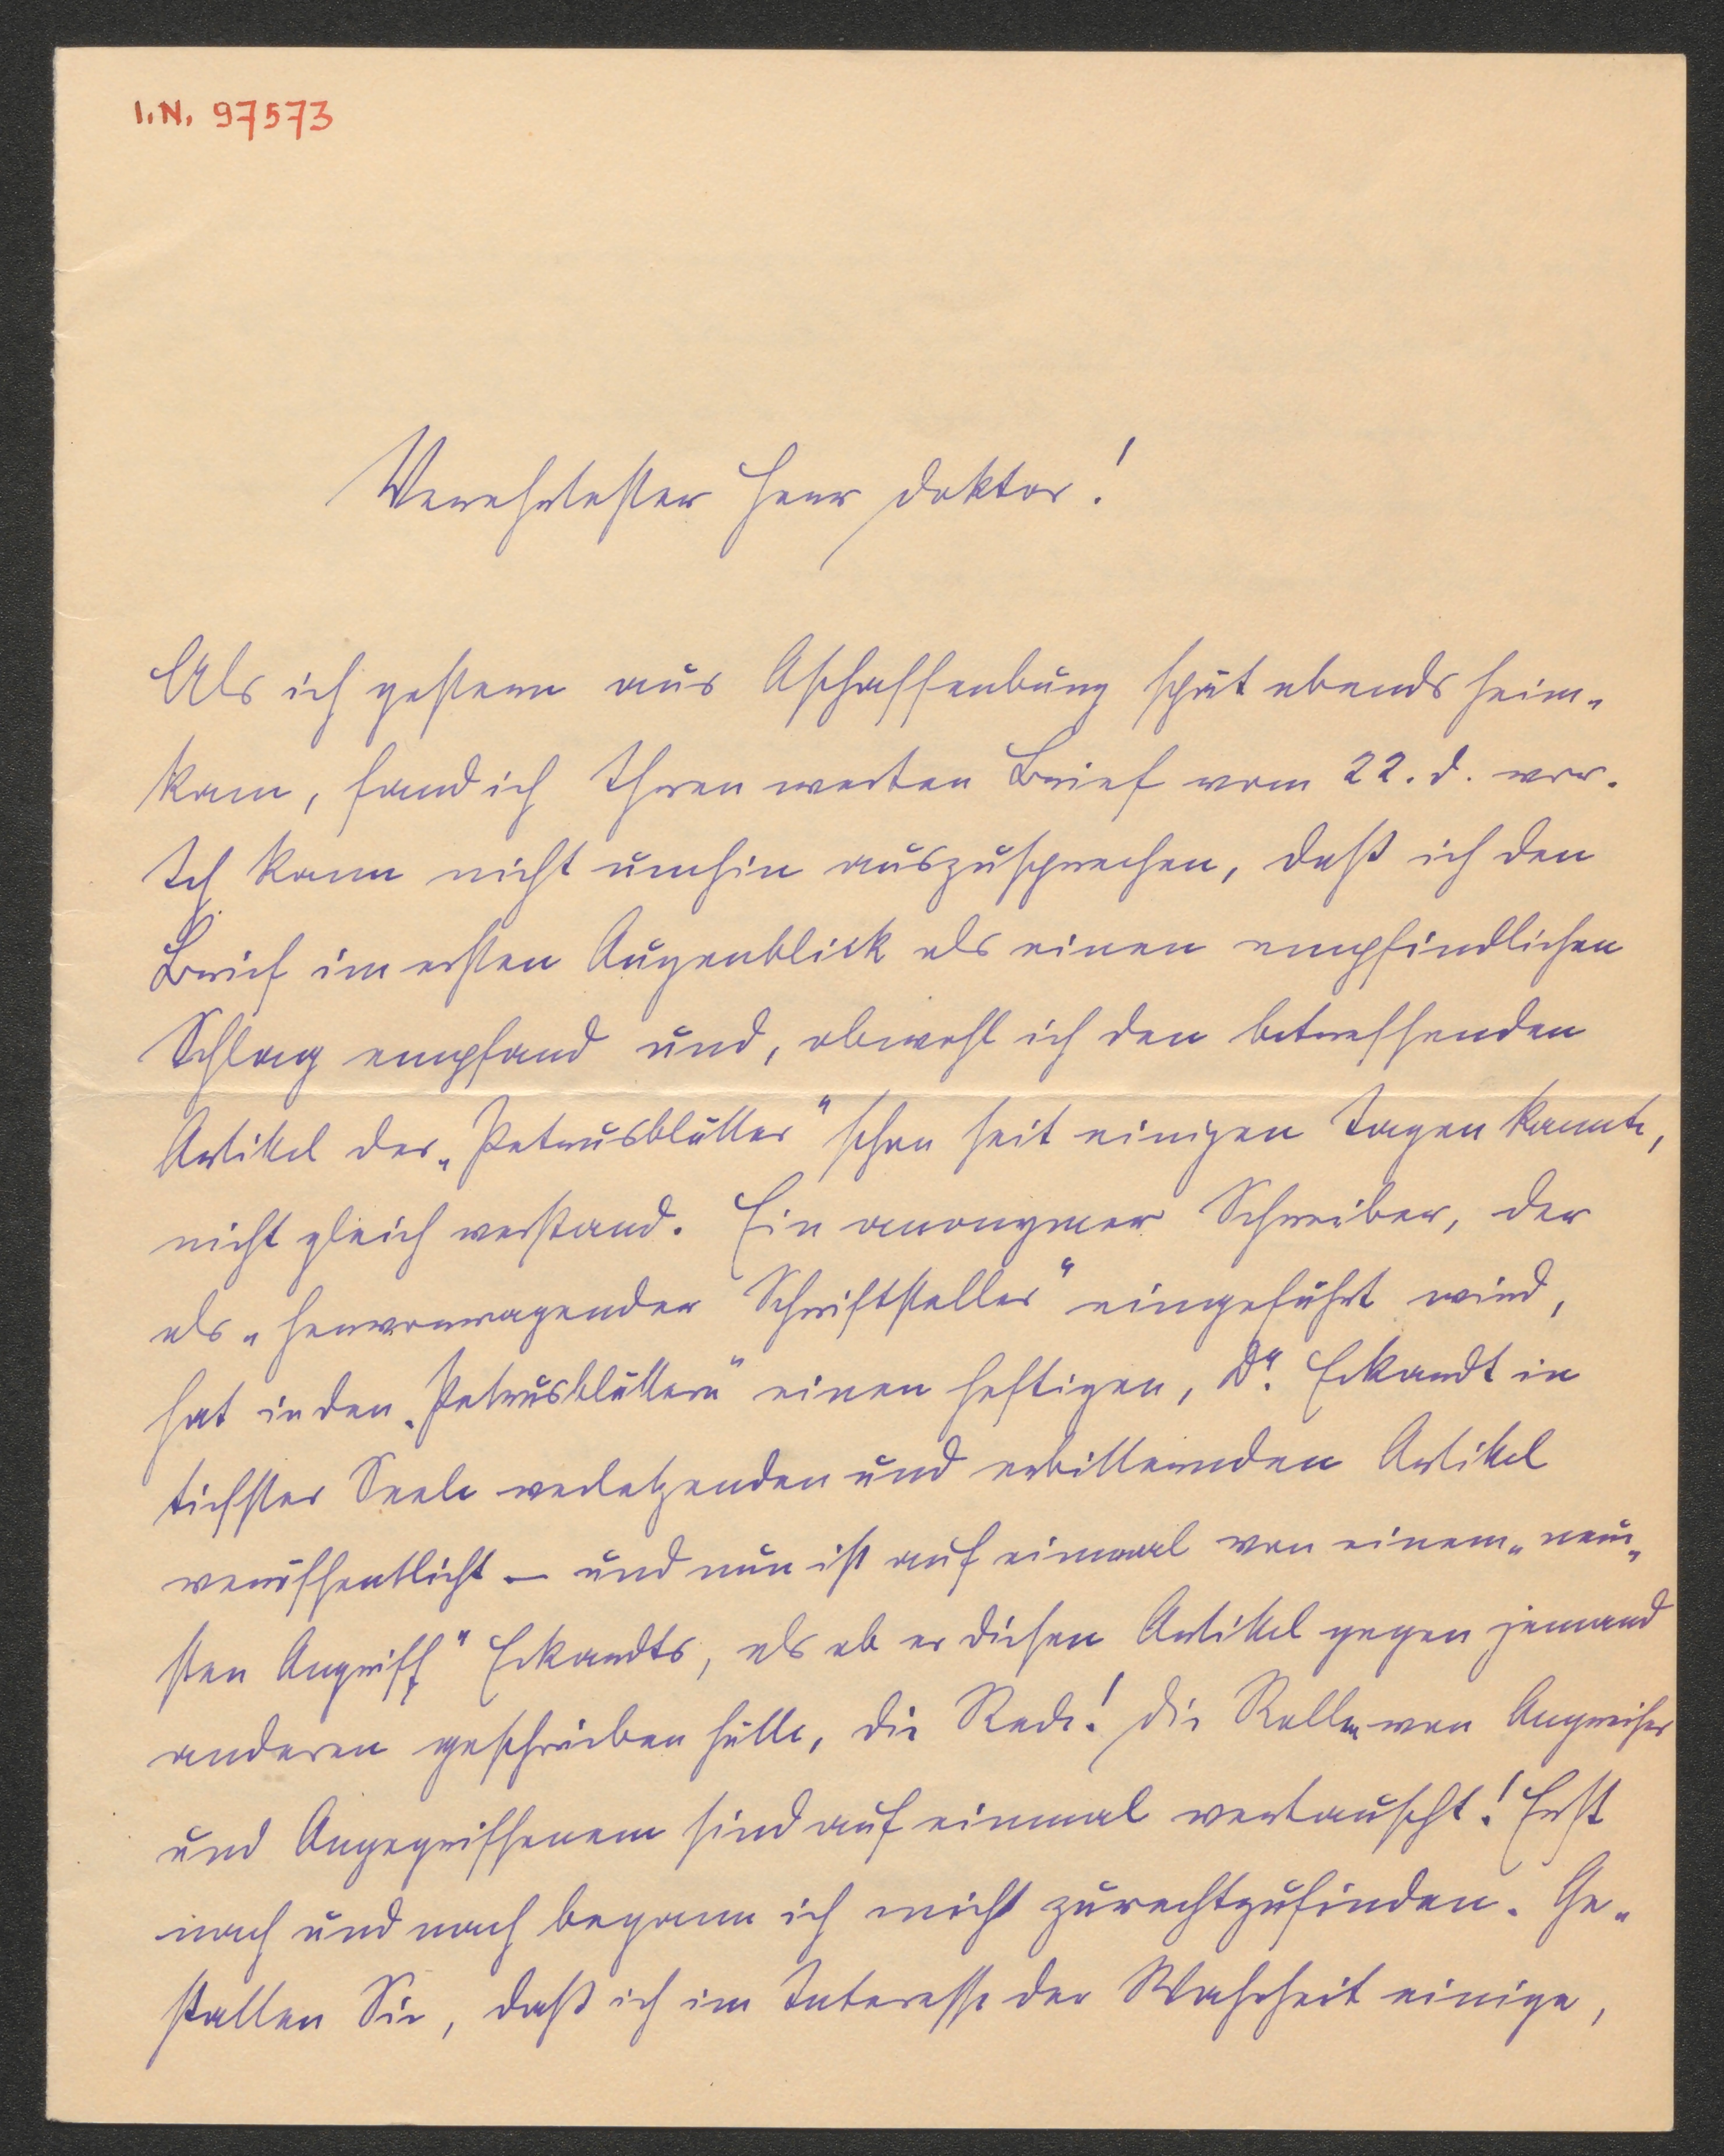 I.N. 97573
Verehrtester Herr Doktor!
Als ich gestern aus Aschaffenburg spät abends heim-
kam, fand ich Ihren werten Brief vom 22. d. vor.
Ich kann nicht umhin auszusprechen, daß ich den
Brief im ersten Augenblick als einen empfindlichen
Schlag empfand und, obwohl ich den betreffenden
Artikel der „Petrusblätter" schon seit einigen Tagen kannte,
nicht gleich verstand. Ein anonymer Schreiber, der
als „hervorragender Schriftsteller" eingeführt wird,
hat in den „Petrusblättern" einen heftigen, Dr. Eckardt in
tiefster Seele verletzenden und erbitternden Artikel
veröffentlicht – und nun ist auf einmal von einem „neue-
sten Angriff" Eckardts, als ob er diesen Artikel gegen jemand
anderen geschrieben hätte, die Rede! Die Rollen von Angreifer
und Angegriffenem sind auf einmal vertauscht! Erst
nach und nach begann ich mich zurechtzufinden. Ge-
statten Sie, daß ich im Interesse der Wahrheit einige,